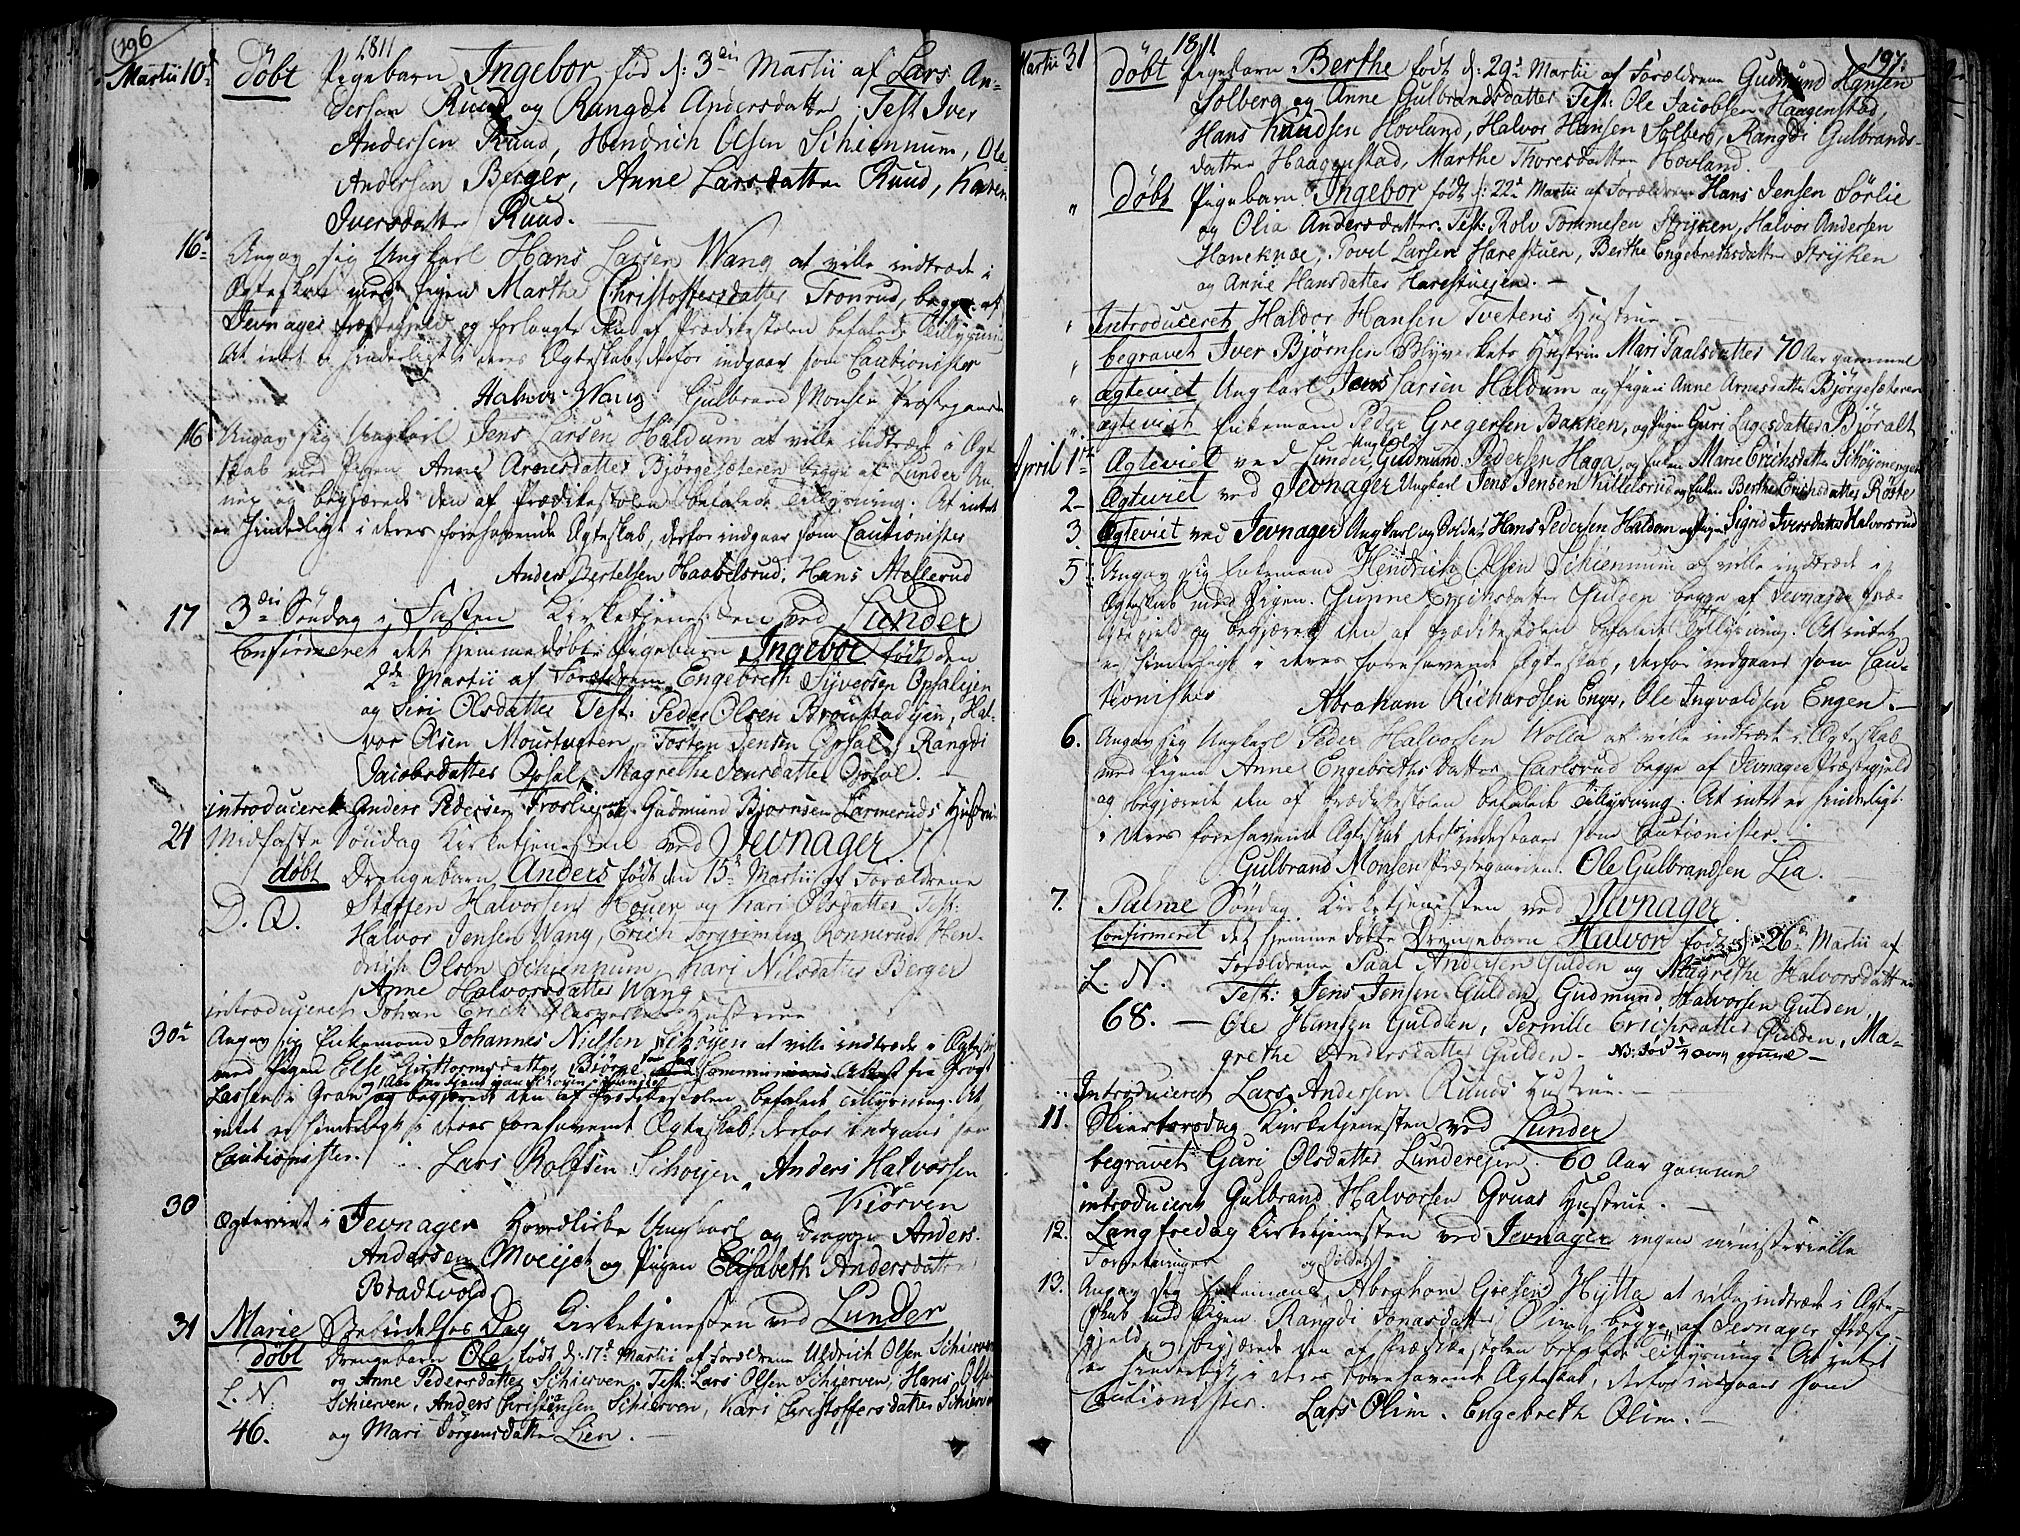 196
1811
Martii 10de døbt Pigebarn Ingebor fød d: 3die Martii af Lars An-
dersen Ruud og Rangdi Andersdatter. Test: Iver
Andersen Ruud, Hendrich Olsen Schiennum, Ole
Andersen Berger, Anne Larsdatter Ruud, Karen
Iversdatter Ruud.
16de Angav sig Ungkarl Hans Larsen Wang at ville indtræde i
Ægteskab med Pigen Marthe Christoffersdatter Tronrud, begge af
Jevnager Præstegjeld og forlangte den af Prædikestolen befalede Tillysning
At intet er hinderligt i deres Ægteskab derfor indgaar som Cautionister
Halvor Wang Gulbrand Monsen Præstegaarden
16 Angav sig Ungkarl Jens Larsen Haldum at ville indtræde i Ægte
skab med Pigen Anne Arnesdatter Bjørgesæteren begge af Lunder An-
nex og begjærede den af Prædikestolen befalede Tillysning. At intet
er hinderligt i deres forehavende Ægteskab, derfor indgaar som Cautionister
Anders Bertelsen Haabelsrud, Hans Mellerud
17 3die Søndag i Fasten Kirketjenesten ved Lunder
Confirmeret det hjemmedøbte Pigebarn Ingebor født den
2den Martii af Forældrene Engebreth Syversen Opsalejen
og Siri Olsdatter Test: Peder Olsen Brovstadejen, Hal-
vor Olsen Moustuen, Tosten Jensen Opsal, Rangdi
Jacobsdatter Opsal, Magrethe Jensdatter Opsal.
introduceret Anders Pedersen Frøslie og Gudmund Bjørnsen Larmeruds Hustrue
24 Midfaste Søndag Kirketjenesten ved Jevnager.
døbt Drengebarn Anders født den 15de Martii af Forældrene
D. Q. Steffen Halvorsen Houer og Kari Olsdatter Test:
Halvor Jensen Wang, Erich Torgrimsen Konnerud, Hen-
drich Olsen Schiennum, Kari Nilsdatter Berger
Anne Halvorsdatter Wang
introduceret Johan Erich Glasværkets Hustrue
30te Angav sig Enkemand Johannes Nielsen Schøyen at ville indtræde i Ægteskab
med Pigen Else Guttormsdatter Bjørge Attest fra Provst
Lassen i Gran og begjærede den af Prædikestolen befalede Tillysning. At
intet er hinderligt i deres forehavende Ægteskab, derfor indgaar som
Cautionister. Lars Rolfsen Schøyen, Anders Halvorsen
Kiørven
30 Ægteviet i Jevnager Hovedkirke Ungkarl og Dragon Anders
Andersen Moeijet og Pigen Elisabeth Andersdatter
Bradtvold
31 Marie Bebudelses Dag Kirketjenesten ved Lunder
døbt Drengebarn Ole født d: 17de Martii af Forældrene Uldrich Olsen Schierven
og Anne Pedersdatter Schierven. Test: Lars Olsen Schierven, Hans Olsen
L. N. Schierven, Anders Christensen Schierven, Kari Christoffersdatter Schierven
46. og Mari Jørgensdatter Lien.
197.
1811
Martii 31 døbt Pigebarn Berthe født d: 29de Martii af Forældrene Gudmund Hansen
Solberg og Anne Gulbrandsdatter Test: Ole Jacobsen Haagenstad
Hans Knudsen Hovland, Halvor Hansen Solberg, Rangdi Gulbrands-
datter Haagenstad, Marthe Thoresdatter Hovland.
" døbt Pigebarn Ingebor født d: 22de Martii af Forældrene Hans Jensen Sørlie
og Olia Andersdatter. Test: Rolv Tommesen Stryken, Halvor Andersen
Haneknæ, Povel Larsen Harestuen, Berthe Engebrethsdatter Stryken
og Anne Hansdatter Harestuejen.
" Introduceret Haldor Hansen Tvetens Hustrue
" begravet Iver Bjørnsen Blyverkets Hustrue Mari Paalsdatter 70 Aar gammel
" ægteviet Ungkarl Jens Larsen Haldum og Pigen Anne Arnesdatter Bjørgesæteren
" ægteviet Enkemand Peder Gregersen Bakken, og Pigen Guri Lagesdatter Bjøralt
April 1te Ægteviet ved Lunder Ungkarl Gudmund Pedersen Haga, og Enken Marie Erichsdatter Schøyenengen
2- Ægteviet ved Jevnager Ungkarl Jens Jensen Kittelsrud og Enken Berthe Erichsdatter Røste
3. Ægteviet ved Jevnager Ungkarl og Soldat Hans Pedersen Haldom og Pigen Sigrid Iversdatter Halvorsrud
5. Angav sig Enkemand Hendrich Olsen Schiennum at ville indtræde i
Ægteskab med Pigen Gunne Erichsdatter Gulden begge af Jevnager Præ-
stegjeld og begjæret den af Prædikestolen befalede Tillysning. At intet
er hinderligt i deres forehavende Ægteskab, derfor indgaar som Cau-
tionister Abraham Richardsen Enger, Ole Ingvaldsen Engen.
6. Angav sig Ungkarl Peder Halvorsen Wolla at ville indtræde i Ægteskab
med Pigen Anne Engebrethsdatter Carlsrud begge af Jevnager Præstegjeld
og begjærede den af Prædikestolen befalede Tillysning. At intet er hinderligt
i deres forehavende Ægteskab derfor indestaar som Cautionister.
Gulbrand Monsen Præstegaarden. Ole Gulbrandsen Lia.
7. Palme Søndag Kirketjenesten ved Jevnager.
Confirmeret det hjemmedøbte Drengebarn Halvor født d: 26de Martii af
Forældrene Paal Andersen Gulden og Magrethe Halvorsdatter
L. N. Test: Jens Jensen Gulden, Gudmund Halvorsen Gulden,
68. Ole Hansen Gulden, Pernille Erichsdatter Gulden, Ma-
grethe Andersdatter Gulden.
Introduceret Lars Andersen Ruuds Hustrue.
11. Skiertorsdag Kirketjenesten ved Lunder
begravet Guri Olsdatter Lunderejen. 60 Aar gammel
introduceret Gulbrand Halvorsen Gruas Hustrue.
12. Langfredag Kirketjenesten ved Jevnager ingen ministerielle
Forretninger
13. Angav sig Enkemand og Soldat Aborghom Goesen Hytta at ville indtræde i Ægte-
skab med Pigen Rangdi Jonasdatter Olim, begge af Jevnager Præste-
gjeld, og begjærede den af Prædikestolen befalede Tillysning. At intet
er hinderligt i deres forehavende Ægteskab, derfor indgaar som
Cautionister. Lars Olim. Engebreth Olim.